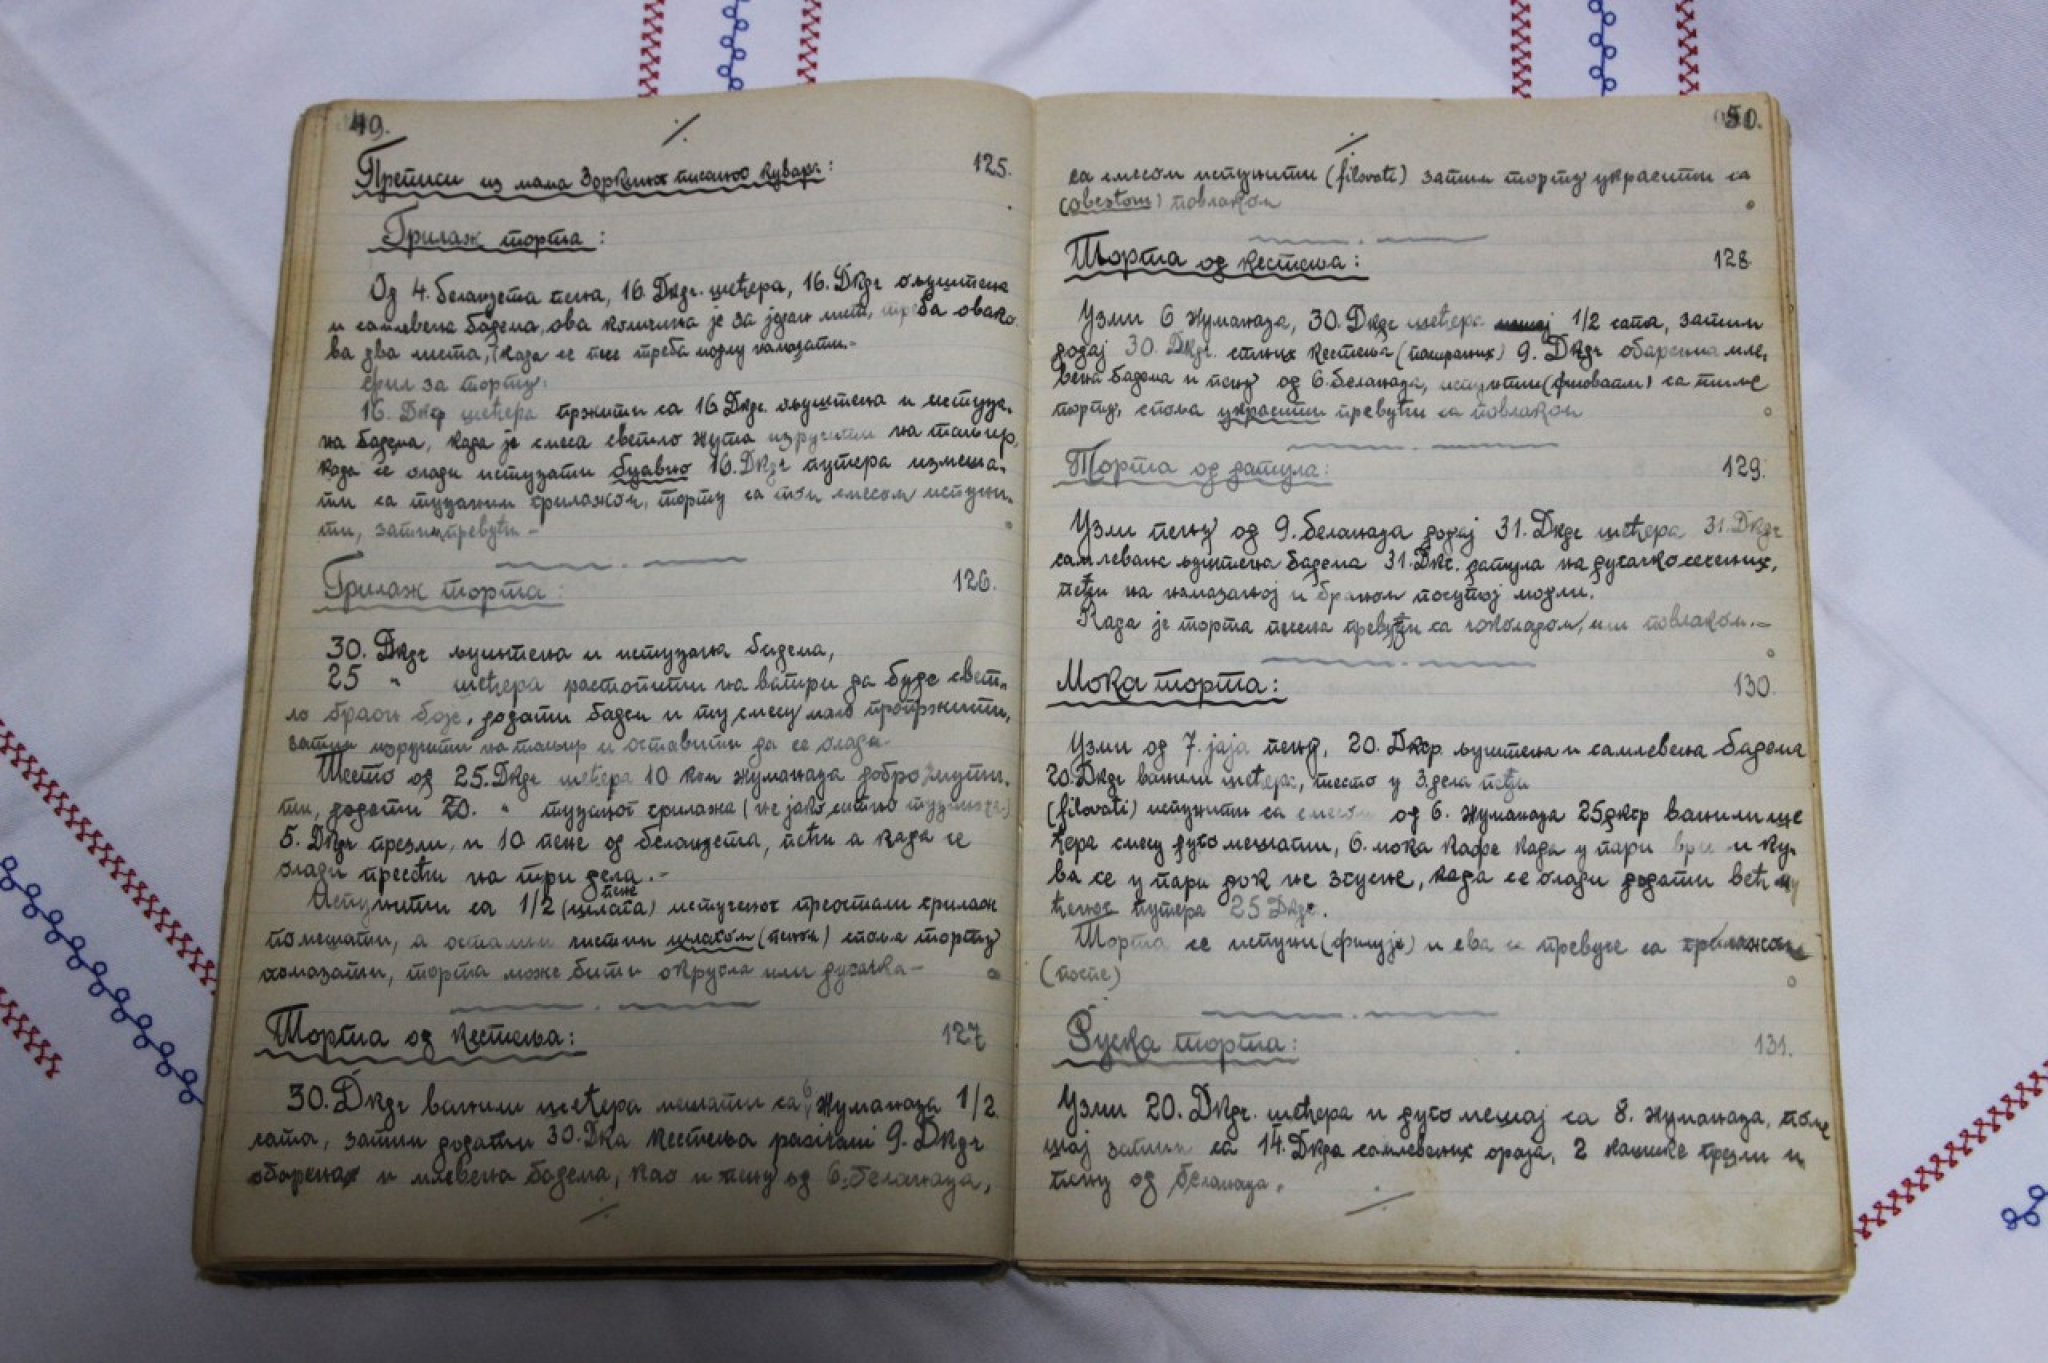 49.
Преписи из мама Зоркиног писаног кувара: 125.
Грилаж торта:
Од 4. беланцета пена, 16. Dкгг. шећера, 16. Dкгг ољуштена
и самлевена бадема, ова количина је за један лист, треба овако
ва два листа, када се пече треба модлу намазати.-
Фил за торту:
16. Dкгр шећера пржити са 16 Dкгг. ољуштена и истуца-
на бадема, када је смеса светло жута изручити на тањир,
када се олади истуцати 16. Dкгг путера измеша-
ти са туцаним грилажом, торту са том смесом испуни-
ти, затим превући -
Грилаж торта: 126.
30. Dкгг љуштена и истуцана бадема,
25 " шећера растопити на ватри да буде свет-
ло браон боје, додати бадем и ту смесу мало пропржити,
затим изручити на тањир и оставити да се олади-
Тесто од 25. Dкгг шећера 10 ком жуманаца добро
ти, додати 20. " туцаног грилажа (не јако ситно туцаног)
5. Dкгг презли, и 10 пене од беланцета, пећи а када се
олади пресећи на три дела.-
пене
Испунити са 1/2 (шлага) истученог преостали грилаж
помешати, а осталим чистим шлагом (пеном) споља торту
намазати, торта може бити округла или дугачка-
Торта од кестења: 127
30. Dкгг ванили шећера мешати са 6 жуманаца 1/2.
сата, затим додати 30. Dка кестења pasirani 9. Dкгг
обарена и млевена бадема, као и пену од 6. беланаца,
50.
са смесом испунити (filovati) затим торту украсити са
повлаком
Торта од кестења: 128
Узми 6 жуманаца, 30. Dкгг шећера мешај 1/2 сата, затим
додај 30. Dкгг. кестења (пасираних) 9. Dкгг обарена мле-
вена бадема и пену од 6. беланаца, испунити (филовати) са
торту, споља украсити превући са повлаком
Торта од датула: 129.
Узми пену од 9. беланаца додај 31. Dкгг шећера 31. Dкгг
самлевене љуштена бадема 31. Dкг. датула на дугачко сечених,
пећи на намазаној и браном посутој модли.
Када је торта печена превући са чоколадом, или повлаком.-
Мока торта: 130.
Узми од 7. јаја пену, 20. Dкгр. љуштена и самлевена бадема
20. Dкгг ванили шећера, тесто у 3. дела пећи
(filovati) испунити са смесом од 6. жуманаца 25 дкгр ванили ше
ћера смесу дуго мешати, 6. мока кафе када у пари ври и ку-
ва се у пари док не згусне, када се олади додати већ
путера 25 Dкгг.
Торта се испуни (филује) и сва се превуче са грилажом
(поспе)
Руска торта: 131.
Узми 20. Dкгг. шећера и дуго мешај са 8. жуманаца, поме
шај затим са 14. Dкгра самлевених ораја, 2 кашике презли и
пену од беланаца.